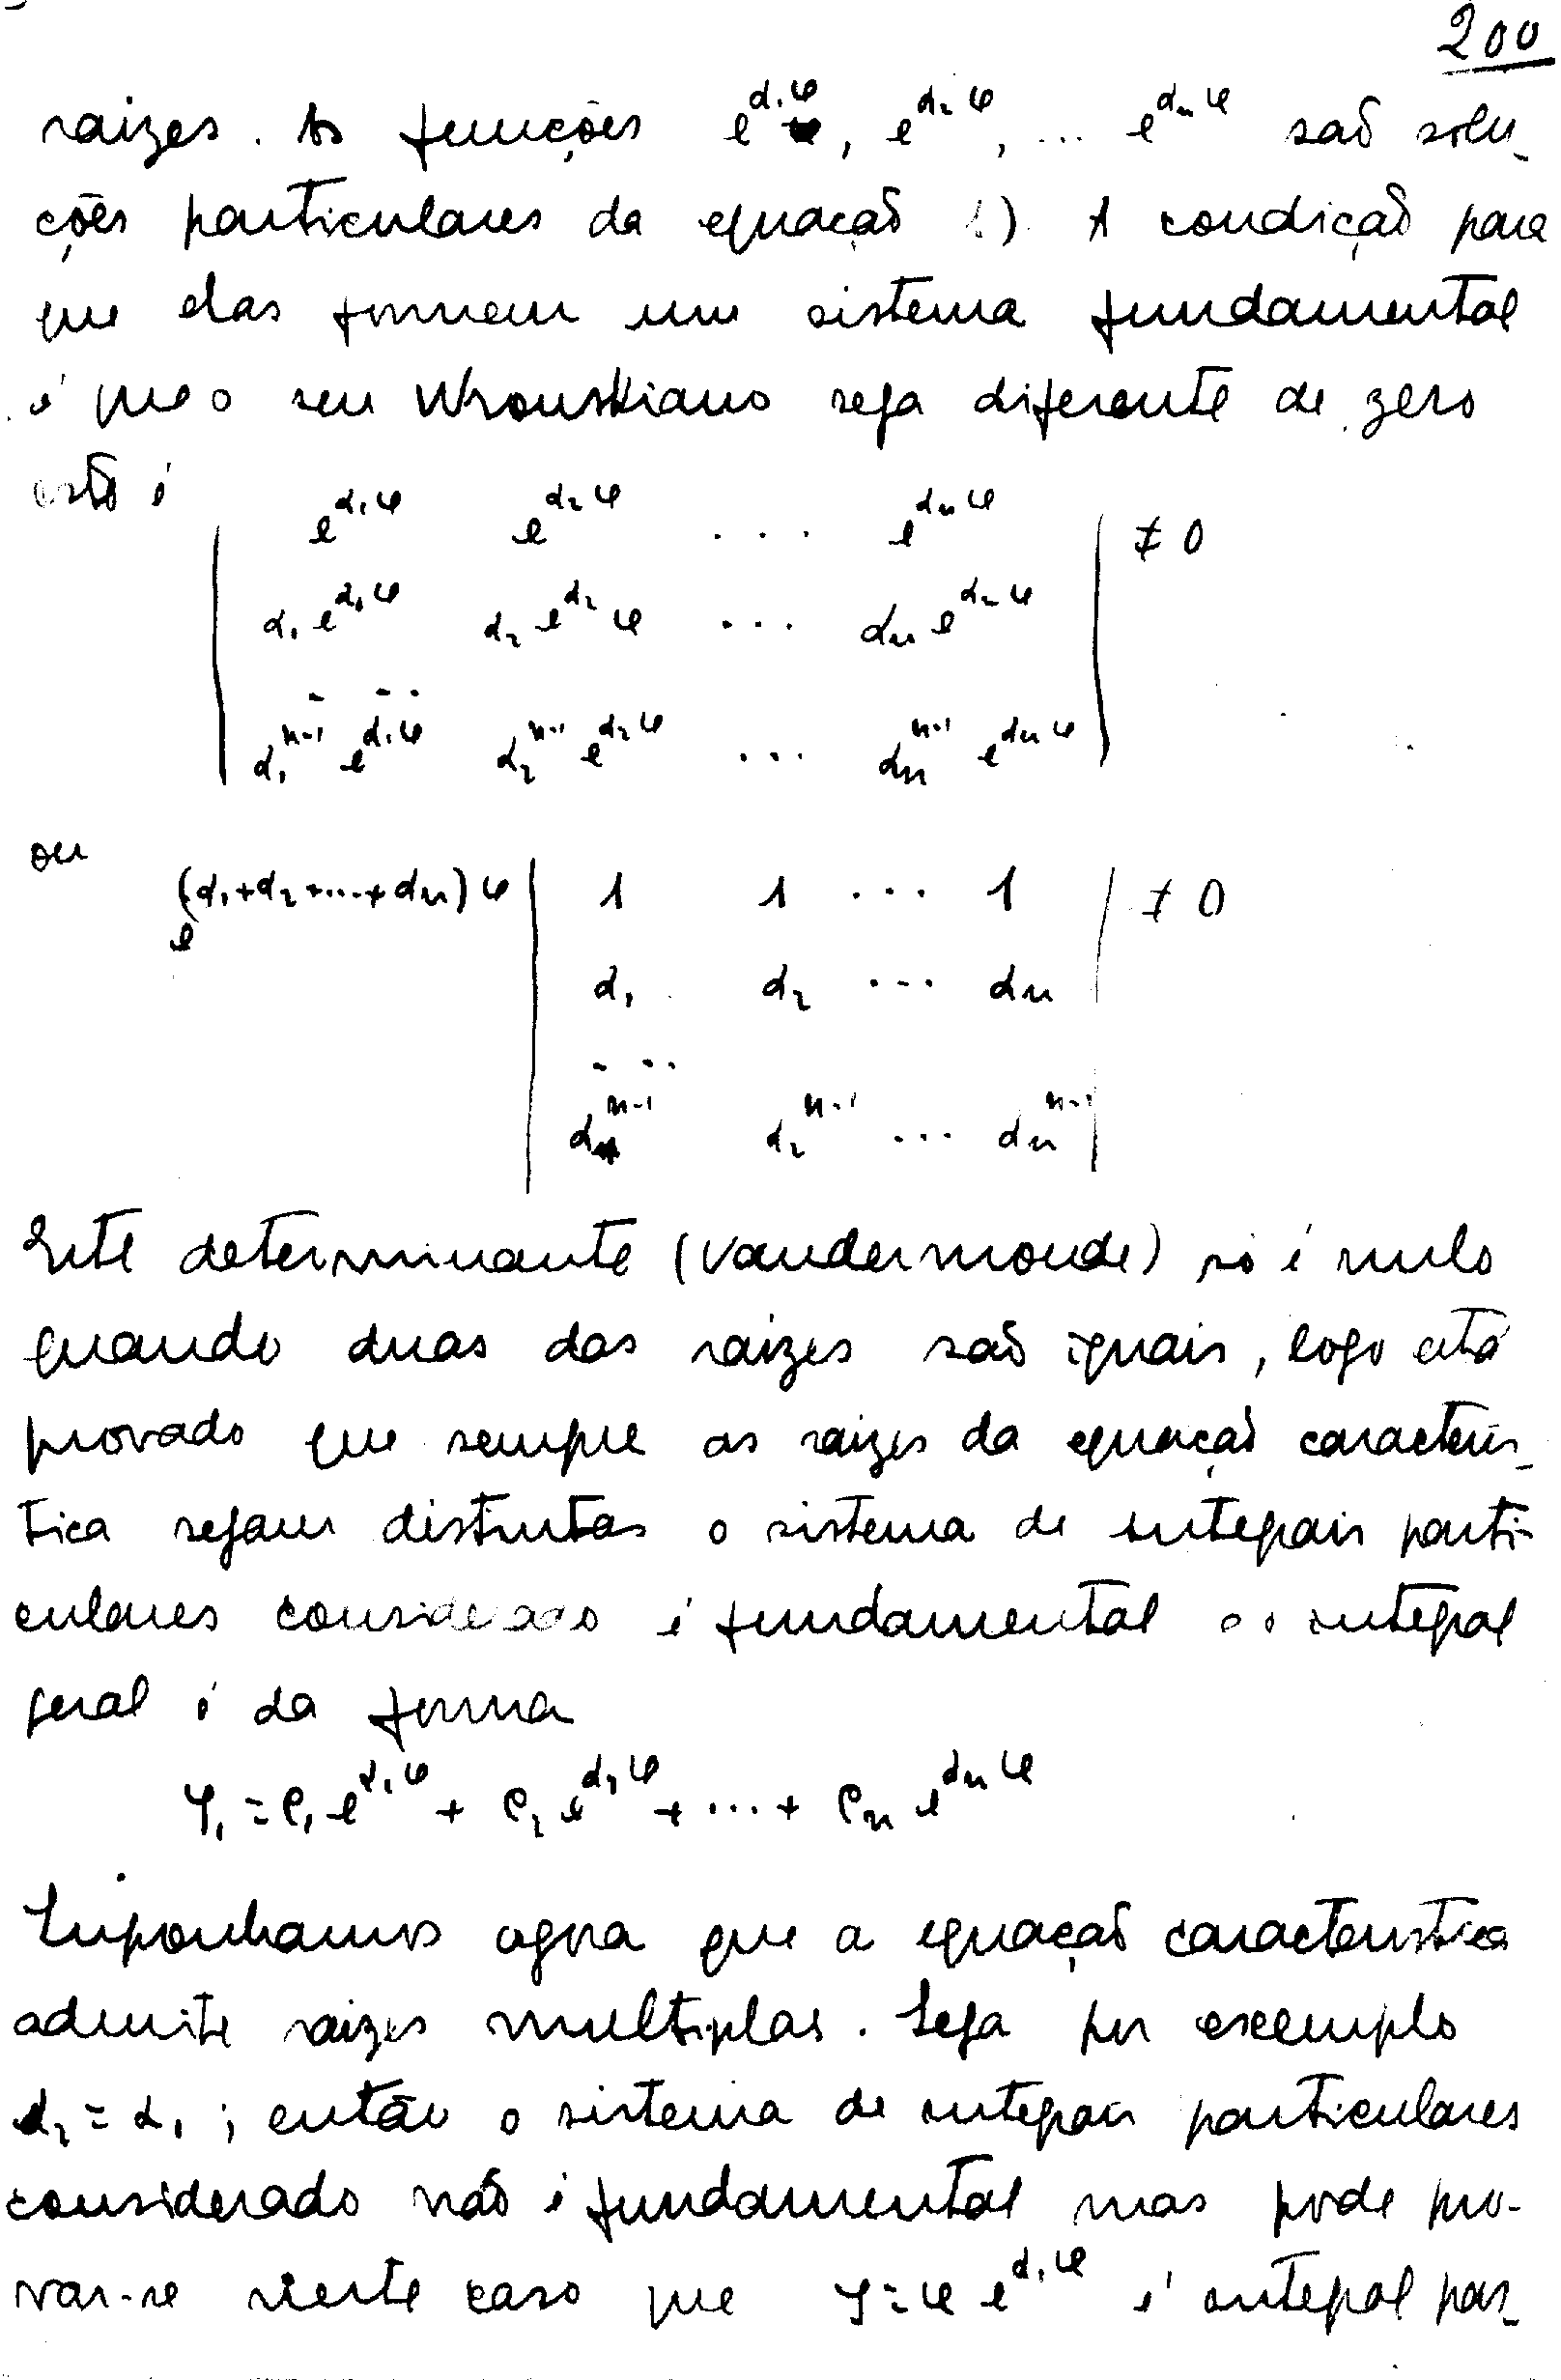 200
raizes. As funções e^{α₁φ}, e^{α₂φ}, ... e^{αₙφ} saõ solu-
ções particulares da equaçaõ 1) A condiçaõ para
que elas formem um sistema fundamental
é que o seu Wronskiano seja diferente de zero
isto é
| e^{α₁φ} e^{α₂φ} ... e^{αₙφ} | ≠ 0
α₁ e^{α₁φ} α₂ e^{α₂} φ ... αₙ e^{αₙφ}
- - ·
α₁^{n-1} e^{α₁φ} α₂^{n-1} e^{α₂φ} ... αₙ^{n-1} e^{αₙφ}
ou
e^{(α₁+α₂+...+αₙ)φ} | 1 1 ... 1 | ≠ 0
α₁ α₂ ... αₙ
- - ·
α₁^{n-1} α₂^{n-1} ... αₙ^{n-1}
Este determinante (Vandermonde) só é nulo
quando duas das raizes saõ iguais, logo está
provado que sempre as raizes da equaçaõ caracterís-
tica sejam distintas o sistema de integrais parti-
culares considerado é fundamental o integral
geral é da forma
φ₁ = C₁ e^{α₁φ} + C₂ e^{α₂φ} + ... + Cₙ e^{αₙφ}
Suponhamos agora que a equaçaõ caracteristica
admite raizes multiplas. Seja por exemplo
α₂ = α₁ ; então o sistema de integrais particulares
considerado naõ é fundamental mas pode pro-
var-se neste caso que y = φ e^{α₁φ} é integral par-